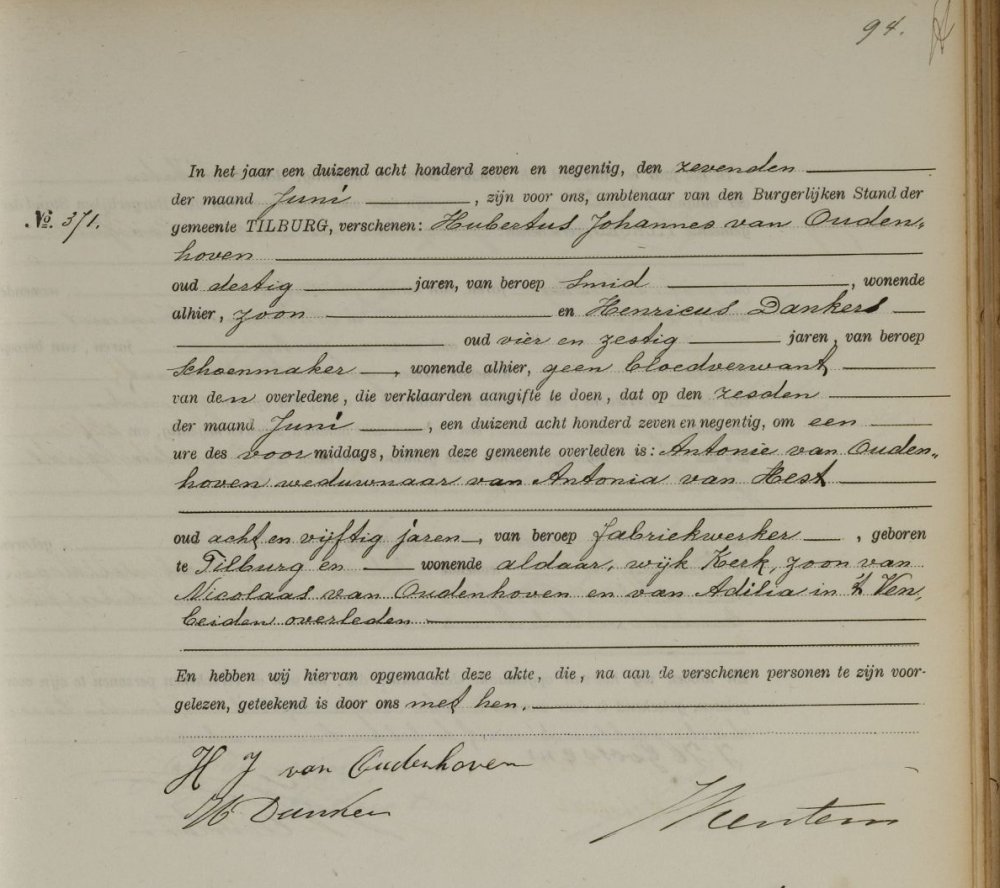 94.
In het jaar een duizend acht honderd zeven en negentig, den zevenden
der maand Juni, zijn voor ons, ambtenaar van den Burgerlijken Stand der
No. 371.
gemeente TILBURG, verschenen: Hubertus Johannes van Ouden„
hoven
oud dertig jaren, van beroep Smid, wonende
alhier, zoon en Henricus Dankers
oud vier en zestig jaren, van beroep
Schoenmaker, wonende alhier, geen bloedverwant
van den overledene, die verklaarden aangifte te doen, dat op den zesden
der maand Juni, een duizend acht honderd zeven en negentig, om een
ure des voormiddags, binnen deze gemeente overleden is: Antonie van Ouden„
hoven weduwnaar van Antonia van Hest
oud acht en vijftig jaren, van beroep fabriekwerker, geboren
te Tilburg en wonende aldaar, wijk Kerk, zoon van
Nicolaas van Oudenhoven en van Adilia in 't Ven,
beiden overleden
En hebben wij hiervan opgemaakt deze akte, die, na aan de verschenen personen te zijn voor-
gelezen, geteekend is door ons met hen.
H J van Oudenhoven
H Danken